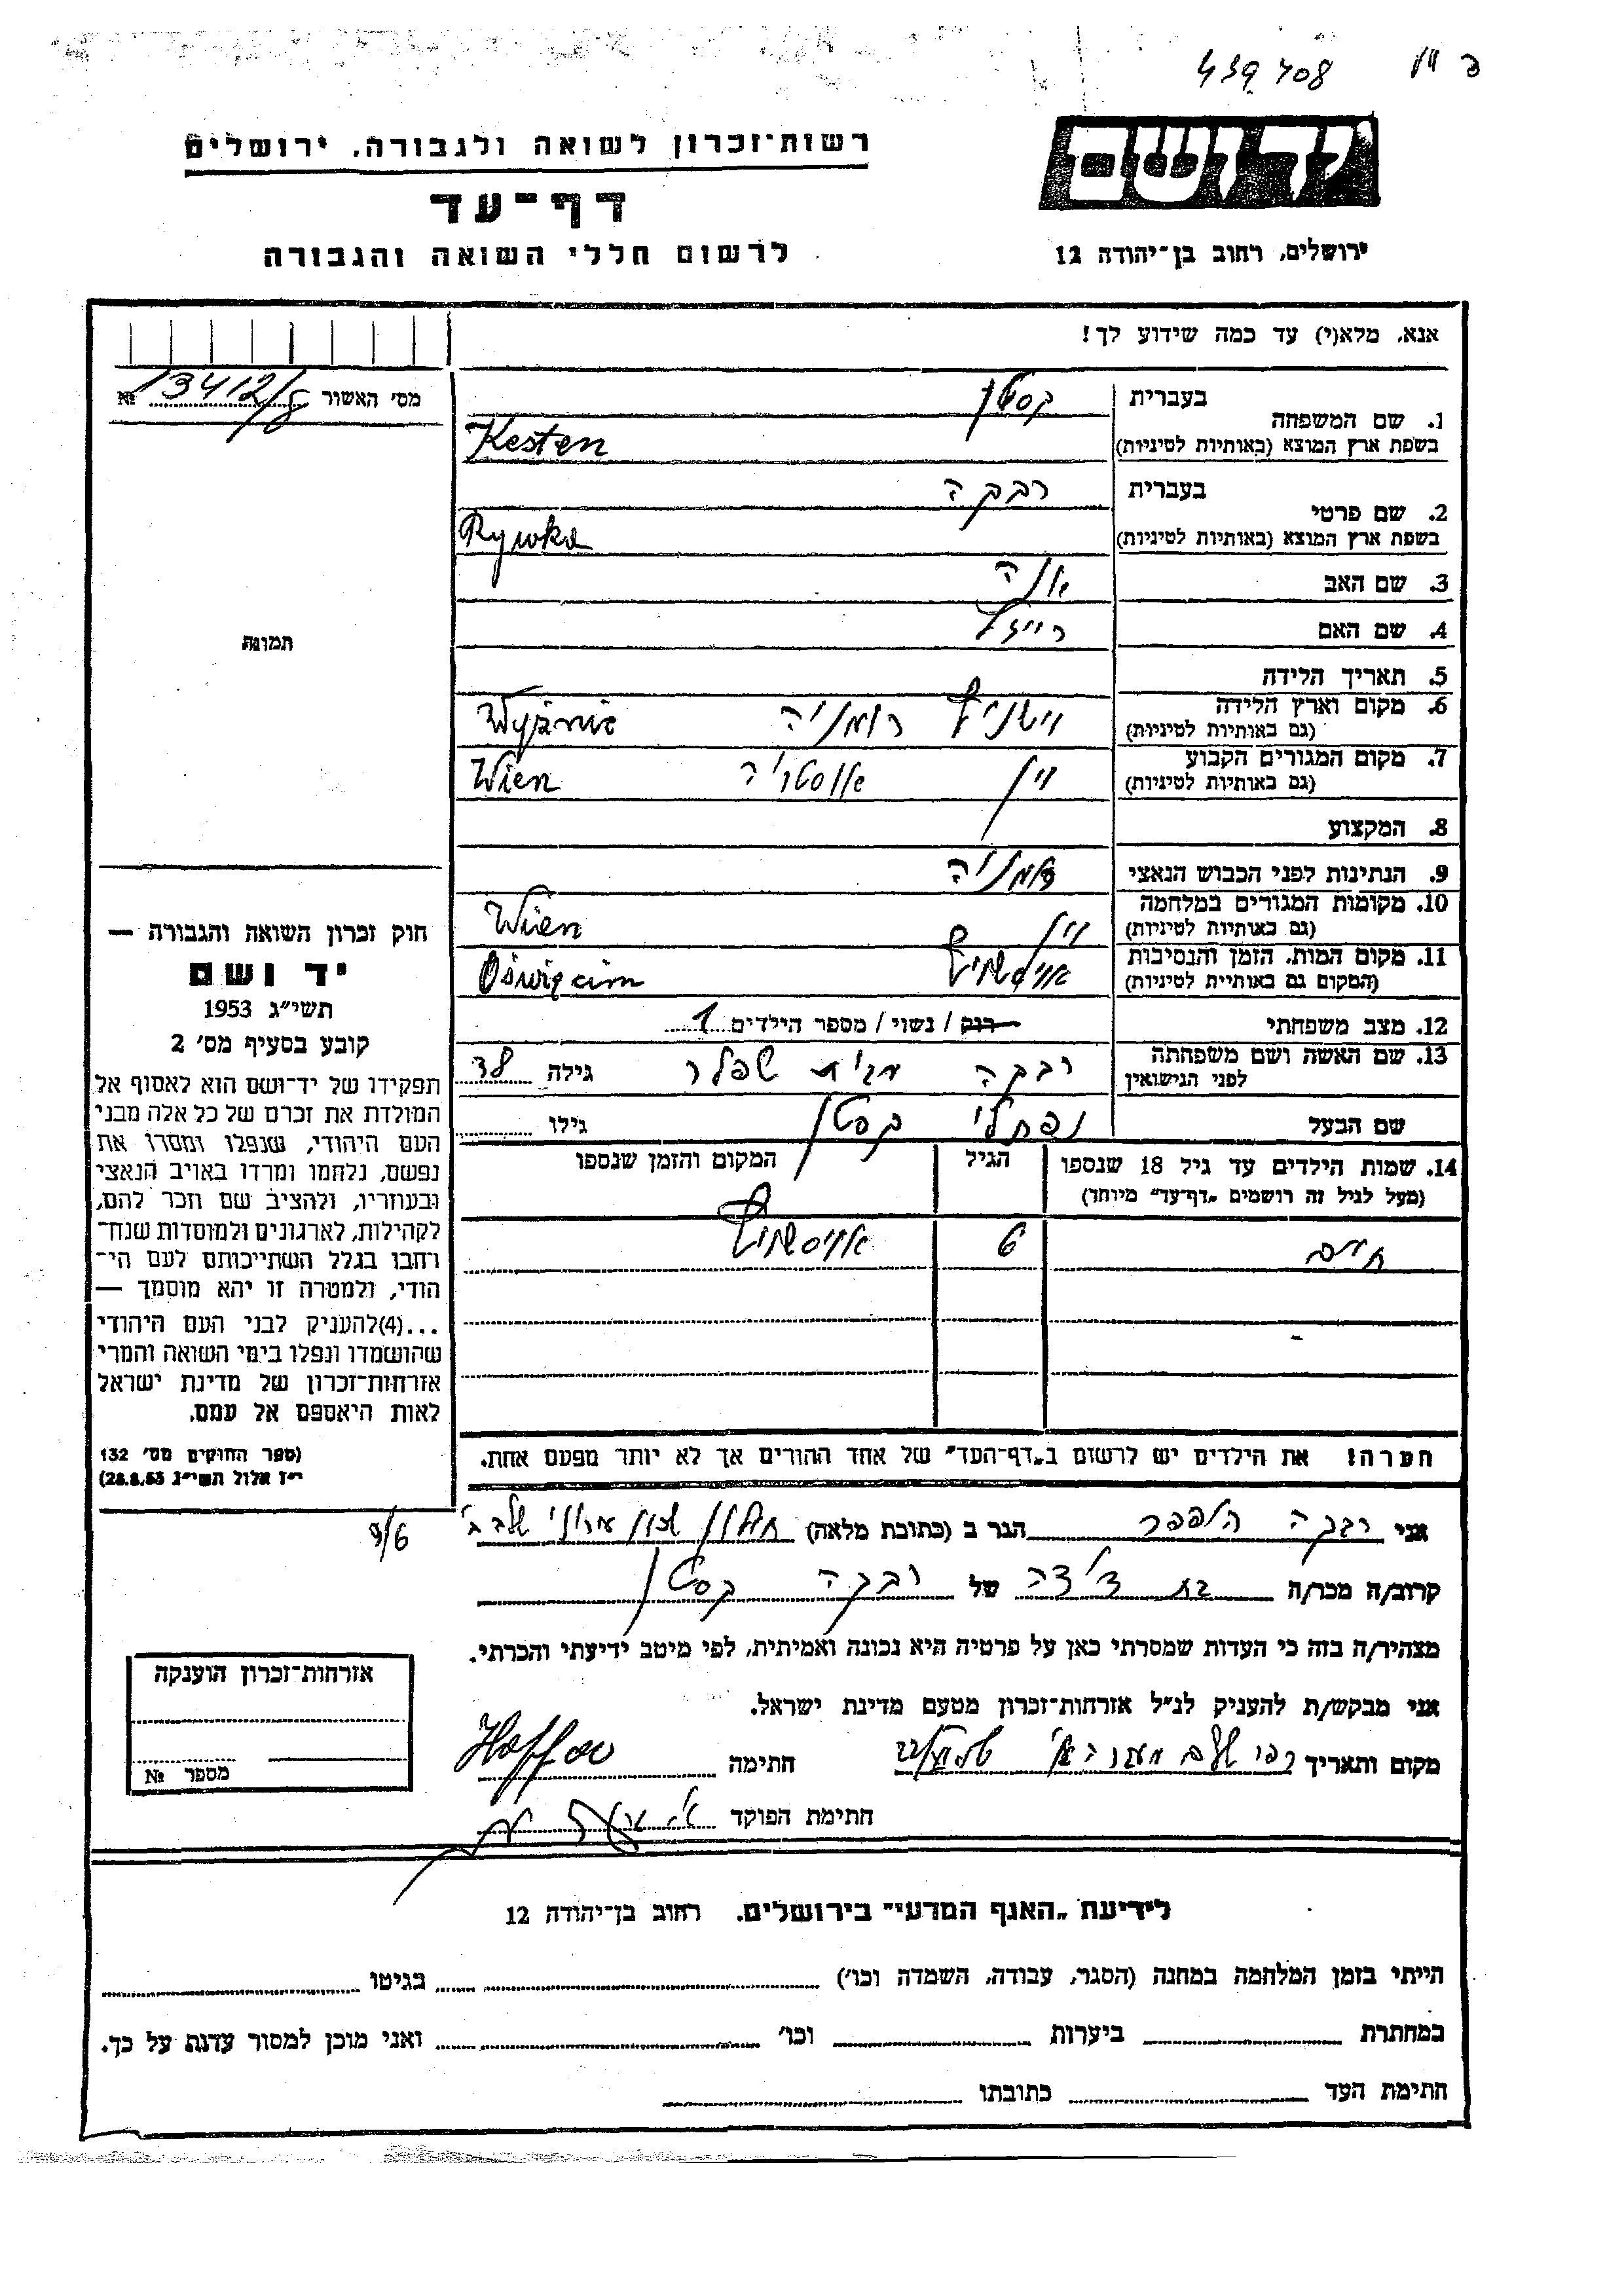 439408
רשות־זכרון לשואה ולגבורה, ירושלים
יד ושם
דף־עד
לרשום חללי השואה והגבורה
ירושלים, רחוב בן־יהודה 12
אנא, מלא(י) עד כמה שידוע לך!
מס' האשור 13412/8 №
1. שם המשפחה
בעברית קסטן
בשפת ארץ המוצא (באותיות לטיניות) Kesten
2. שם פרטי
בעברית רבקה
בשפת ארץ המוצא (באותיות לטיניות) Rywka
3. שם האב
4. שם האם רייזל
תמונה
5. תאריך הלידה
6. מקום וארץ הלידה וישניץ רומניה
(גם באותיות לטיניות)
7. מקום המגורים הקבוע וין אוסטריה Wien
(גם באותיות לטיניות)
8. המקצוע
9. הנתינות לפני הכבוש הנאצי
10. מקומות המגורים במלחמה וין Wien
(גם באותיות לטיניות)
11. מקום המות, הזמן והנסיבות אוישוויץ Oświęcim
(המקום גם באותיית לטיניות)
12. מצב משפחתי רוק / נשוי / מספר הילדים 1
13. שם האשה ושם משפחתה
לפני הנישואין רבקה מבית שפלר גילה 38
שם הבעל נפתלי קסטן גילו
14. שמות הילדים עד גיל 18 שנספו הגיל המקום והזמן שנספו
(מעל לגיל זה רושמים „דף־עד" מיוחד)
חיים 6 אוישוויץ
הערה! את הילדים יש לרשום ב„דף־העד" של אחד ההורים אך לא יותר מפעם אחת.
חוק זכרון השואה והגבורה —
יד ושם
תשי״ג 1953
קובע בסעיף מס' 2
תפקידו של יד־ושם הוא לאסוף אל
המולדת את זכרם של כל אלה מבני
העם היהודי, שנפלו ומסרו את
נפשם, נלחמו ומרדו באויב הנאצי
ובעוזריו, ולהציב שם וזכר להם,
לקהילות, לארגונים ולמוסדות שנח־
רחבו בגלל השתייכותם לעם הי־
הודי, ולמטרה זו יהא מוסמך —
...(4)להעניק לבני העם היהודי
שהושמדו ונפלו בימי השואה והמרי
אזרחות־זכרון של מדינת ישראל
לאות היאספם אל עמם.
(ספר החוקים מס' 132
י״ז אלול תשי״ג 28.8.53)
אני רבקה הופפר הגר ב (כתובת מלאה)
קרוב/ה מכר/ה בת דודה של רבקה קסטן
מצהיר/ה בזה כי העדות שמסרתי כאן על פרטיה היא נכונה ואמיתית, לפי מיטב ידיעתי והכרתי.
אני מבקש/ת להעניק לנ״ל אזרחות־זכרון מטעם מדינת ישראל.
מקום ותאריך חתימה
חתימת הפוקד
אזרחות־זכרון הוענקה
מספר №
לידיעת „האגף המדעי" בירושלים, רחוב בן־יהודה 12
הייתי בזמן המלחמה במחנה (הסגר, עבודה, השמדה וכו') בגיטו
במחתרת ביערות וכו' ואני מוכן למסור עדות על כך.
חתימת העד כתובתו